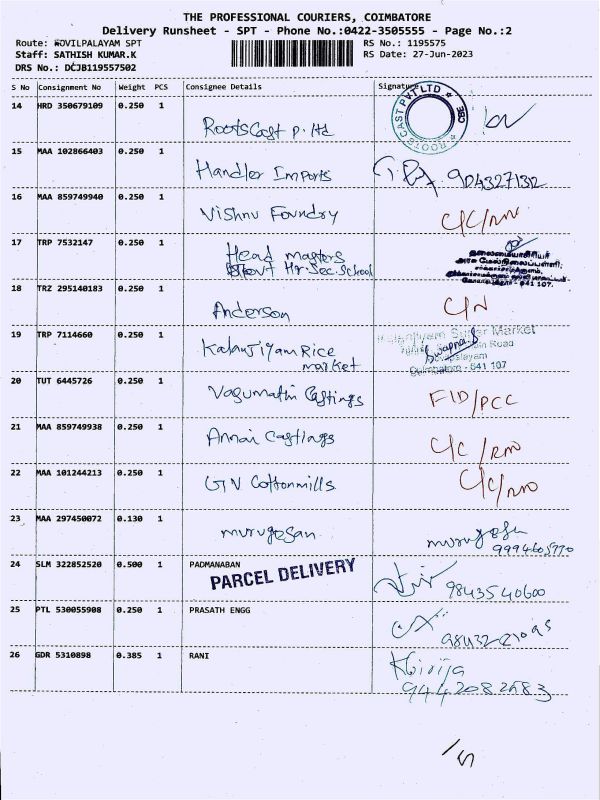 THE PROFESSIONAL COURIERS, COIMBATORE
Delivery Runsheet - SPT - Phone No.:0422-3505555 - Page No.:2
Route: KOVILPALAYAM SPT
RS No.: 1195575
Staff: SATHISH KUMAR.K
RS Date: 27-Jun-2023
DRS No.: DCJB119557502
S No Consignment No Weight PCS Consignee Details Signature
14 HRD 350679109 0.250 1 RootsCast P. ltd
ROOTS CAST PVT LTD * CBE *
15 MAA 102866403 0.250 1 Handler Imports
16 MAA 859749940 0.250 1 Vishnu Foundry C/C/RM
17 TRP 7532147 0.250 1 Head masters
Govt Hr.Sec.School
தலைமையாசிரியர்
அரசு மேல்நிலைப்பள்ளி,
641 107.
18 TRZ 295140183 0.250 1 Anderson C/N
19 TRP 7114660 0.250 1 Kalanjiyam Rice
market
Kalanjiyam Super Market
Swapna.S Main Road
Kovilpalayam
Coimbatore - 641 107
20 TUT 6445726 0.250 1 Vagumathi Castings FID/PCC
21 MAA 859749938 0.250 1 Annai Castings C/C/RM
22 MAA 101244213 0.250 1 GTV Cottonmills C/C/RM
23 MAA 297450072 0.130 1 murugesan murugesan
9994605770
24 SLM 322852520 0.500 1 PADMANABAN
PARCEL DELIVERY
9843540600
25 PTL 530055908 0.250 1 PRASATH ENGG
26 GDR 5310898 0.385 1 RANI
9442082583